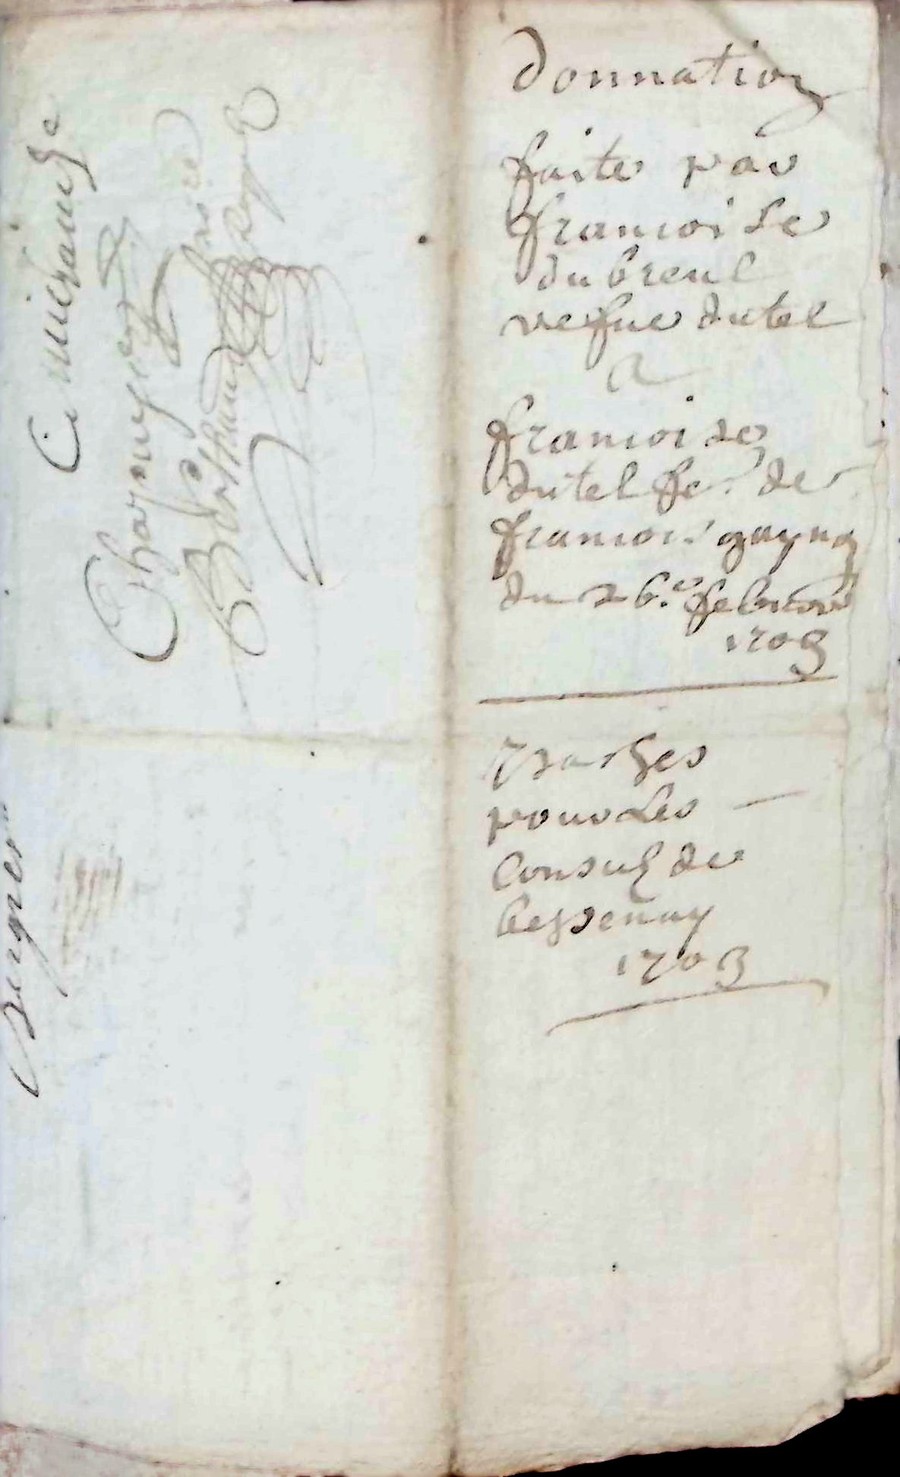 donnation
faite par
francoise
dubreul
vefue dutel
a
francoise
dutel fe. de
francois guynq
du 26.e febuor
1703
pour les
consulz de
bessenay
1703
C. michaud
Charmy
Berthaud